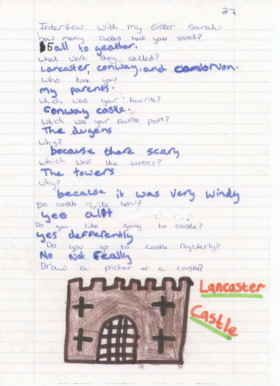 27
Interview with my sister Sarah.
how many castles have you visited?
5 all to geather.
what were they called?
Lancaster, conway, and
Who took you?
my parents.
Which was your favrite?
Conway castle.
Which was your favrite part?
The dugens
Why?
because there scary
which was the worst?
The towers
Why?
because it was very windy
Do castle
yes a lot
Do you like going to castle?
yes derfernertly
Do you go to castle regularly?
No not really
Draw a picher of a castle?
Lancaster
Castle